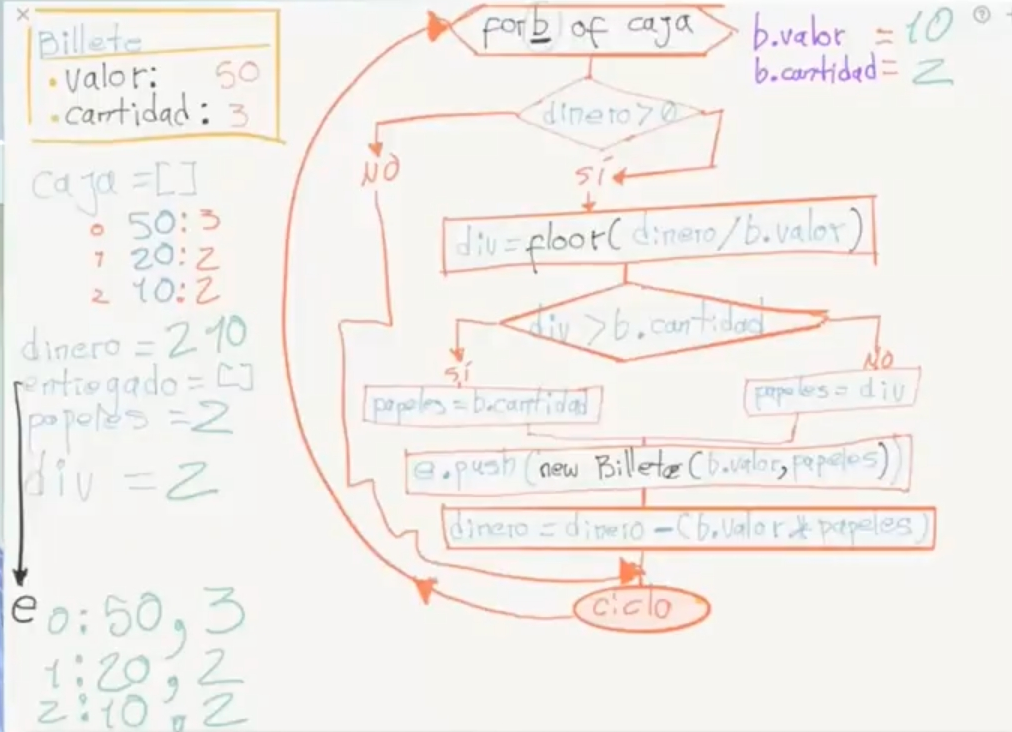 Billete
• valor: 50
• cantidad: 3
caja = []
0 50:3
1 20:2
2 10:2
dinero = 210
entregado = []
papeles = 2
div = 2
e
0:50,3
1:20,2
2:10,2
for b of caja
dinero > 0
NO
SÍ
div = floor( dinero / b.valor)
div > b.cantidad
SÍ
NO
papeles = b.cantidad
papeles = div
e.push(new Billete(b.valor, papeles))
dinero = dinero - (b.valor * papeles)
ciclo
b.valor = 10
b.cantidad = 2